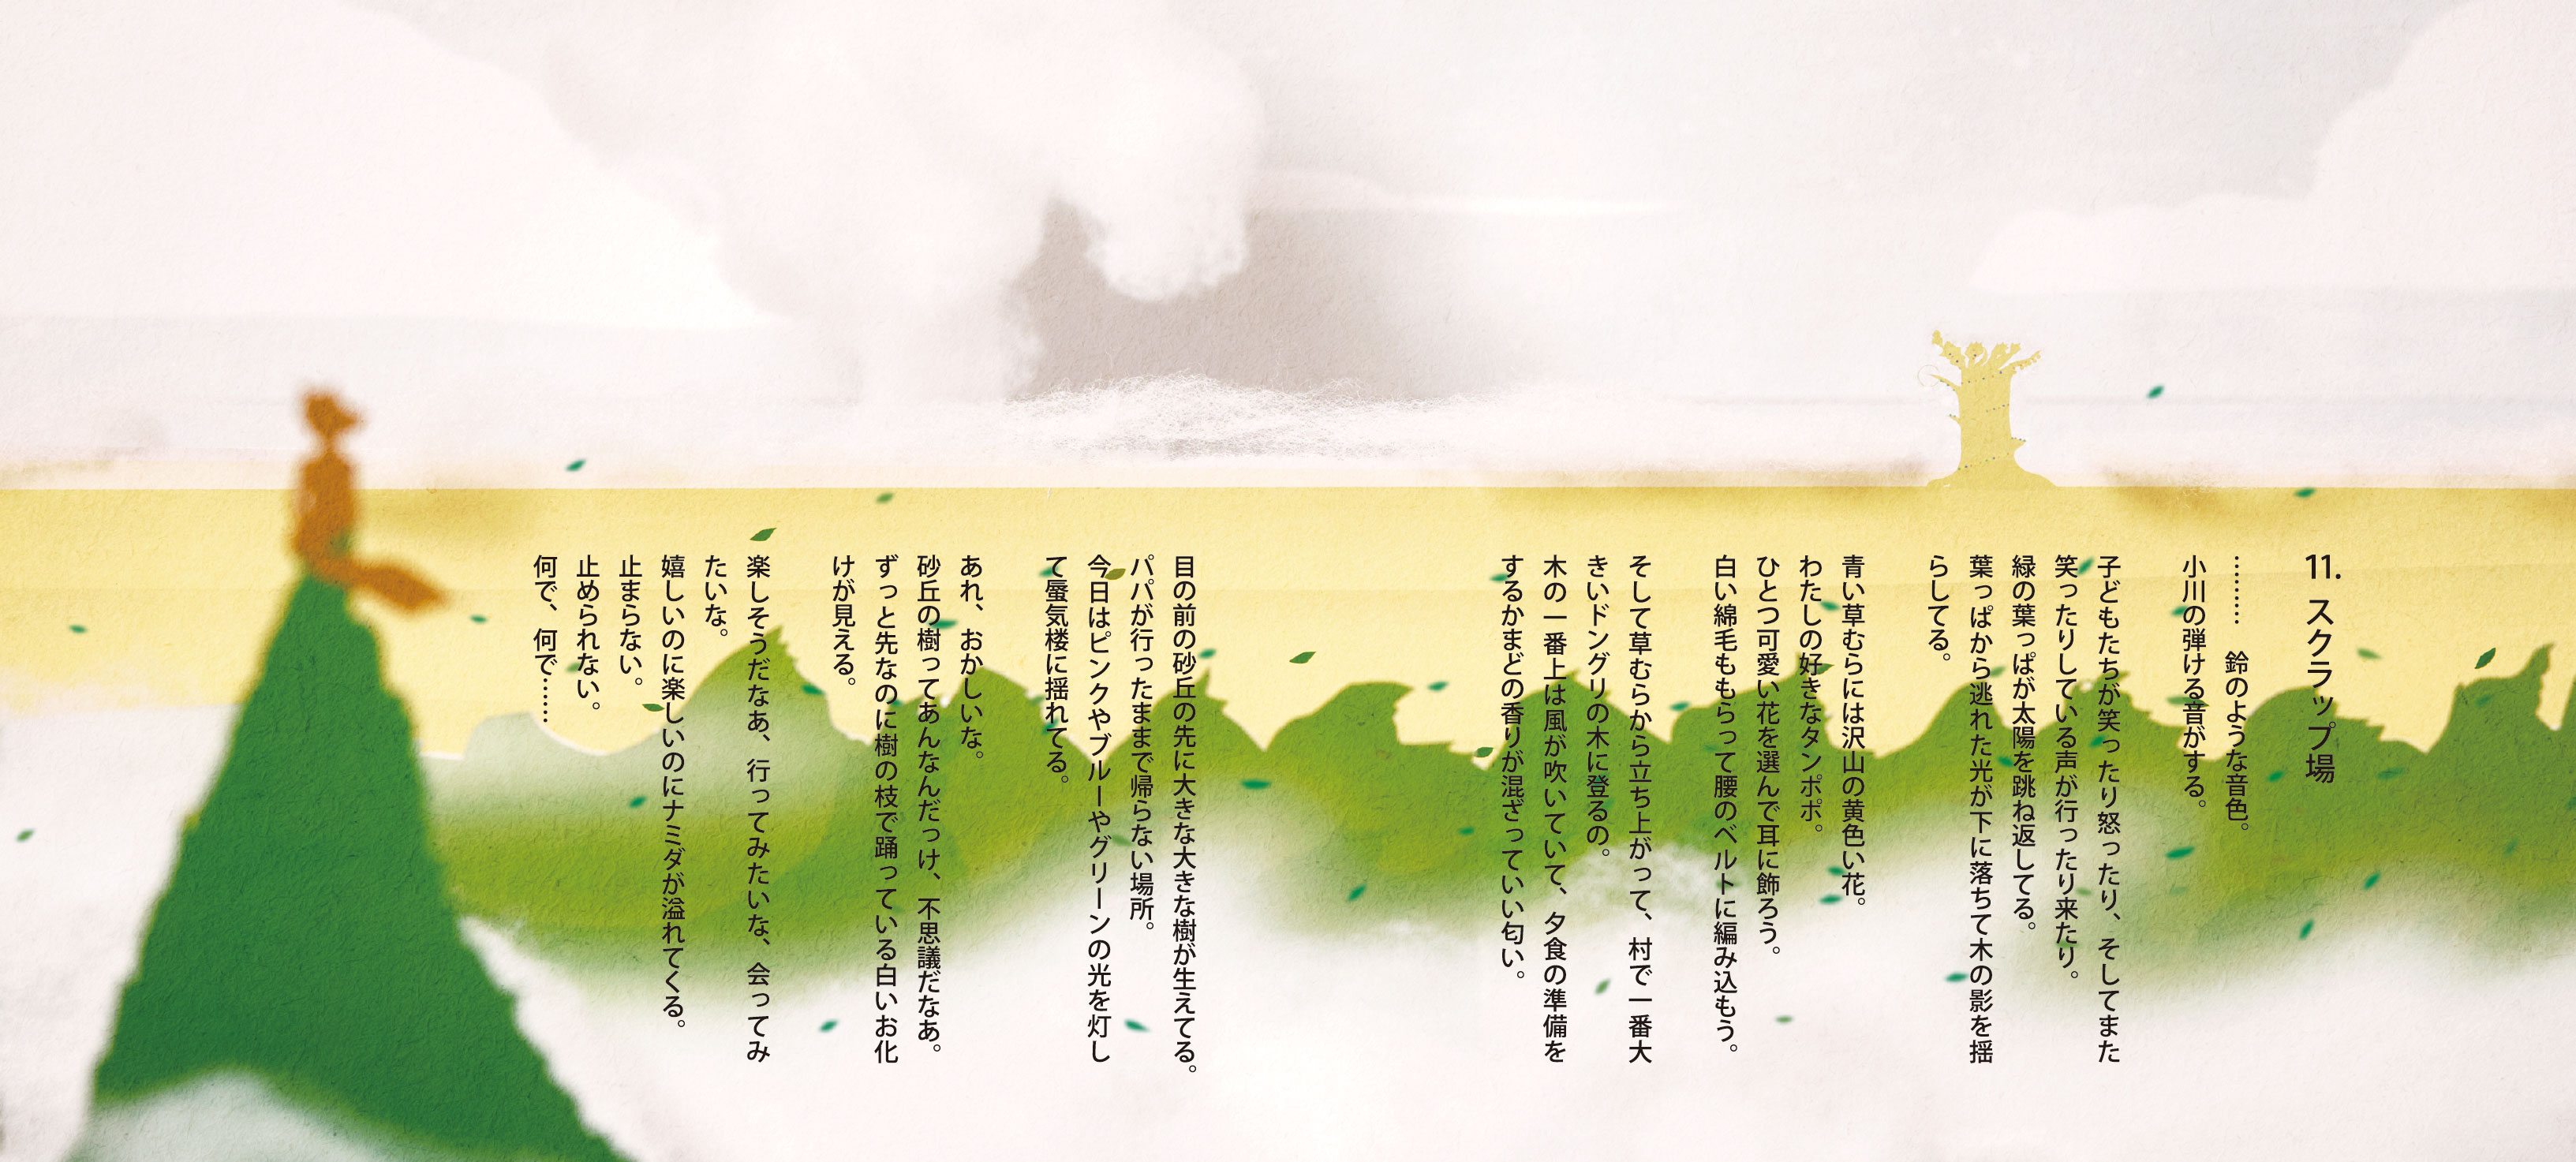 11. スクラップ場
……… 鈴のような音色。
小川の弾ける音がする。
子どもたちが笑ったり怒ったり、そしてまた
笑ったりしている声が行ったり来たり。
緑の葉っぱが太陽を跳ね返してる。
葉っぱから逃れた光が下に落ちて木の影を揺
らしてる。
青い草むらには沢山の黄色い花。
わたしの好きなタンポポ。
ひとつ可愛い花を選んで耳に飾ろう。
白い綿毛ももらって腰のベルトに編み込もう。
そして草むらから立ち上がって、村で一番大
きいドングリの木に登るの。
木の一番上は風が吹いていて、夕食の準備を
するかまどの香りが混ざっていい匂い。
目の前の砂丘の先に大きな大きな樹が生えてる。
パパが行ったままで帰らない場所。
今日はピンクやブルーやグリーンの光を灯し
て蜃気楼に揺れてる。
あれ、おかしいな。
砂丘の樹ってあんなんだっけ、不思議だなあ。
ずっと先なのに樹の枝で踊っている白いお化
けが見える。
楽しそうだなあ、行ってみたいな、会ってみ
たいな。
嬉しいのに楽しいのにナミダが溢れてくる。
止まらない。
止められない。
何で、何で……